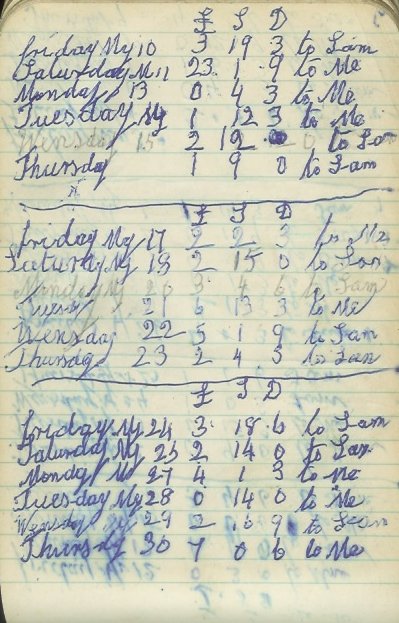 £ S D
Friday My 10 3 19 3 to Sam
Saturday M 11 23 1 9 to Me
Monday 13 0 4 3 to Me
Tuesday My 1 12 3 to Me
Wensday 15 2 12 0 to Sam
Thursday 1 9 0 to Sam
£ S D
Friday My 17 2 2 3 to Me
Saturday My 18 2 15 0 to Sam
Monday My 20 3 4 6 to Sam
Tuesdy 21 6 13 3 to Me
Wensday 22 5 1 9 to Sam
Thursday 23 2 4 3 to Sam
£ S D
Friday My 24 3 18 6 to Sam
Saturday My 25 2 14 0 to Sam
Monday M 27 4 1 3 to Me
Tuesday My 28 0 14 0 to Me
Wensday My 29 2 16 9 to Sam
Thursdy 30 7 0 6 to Me